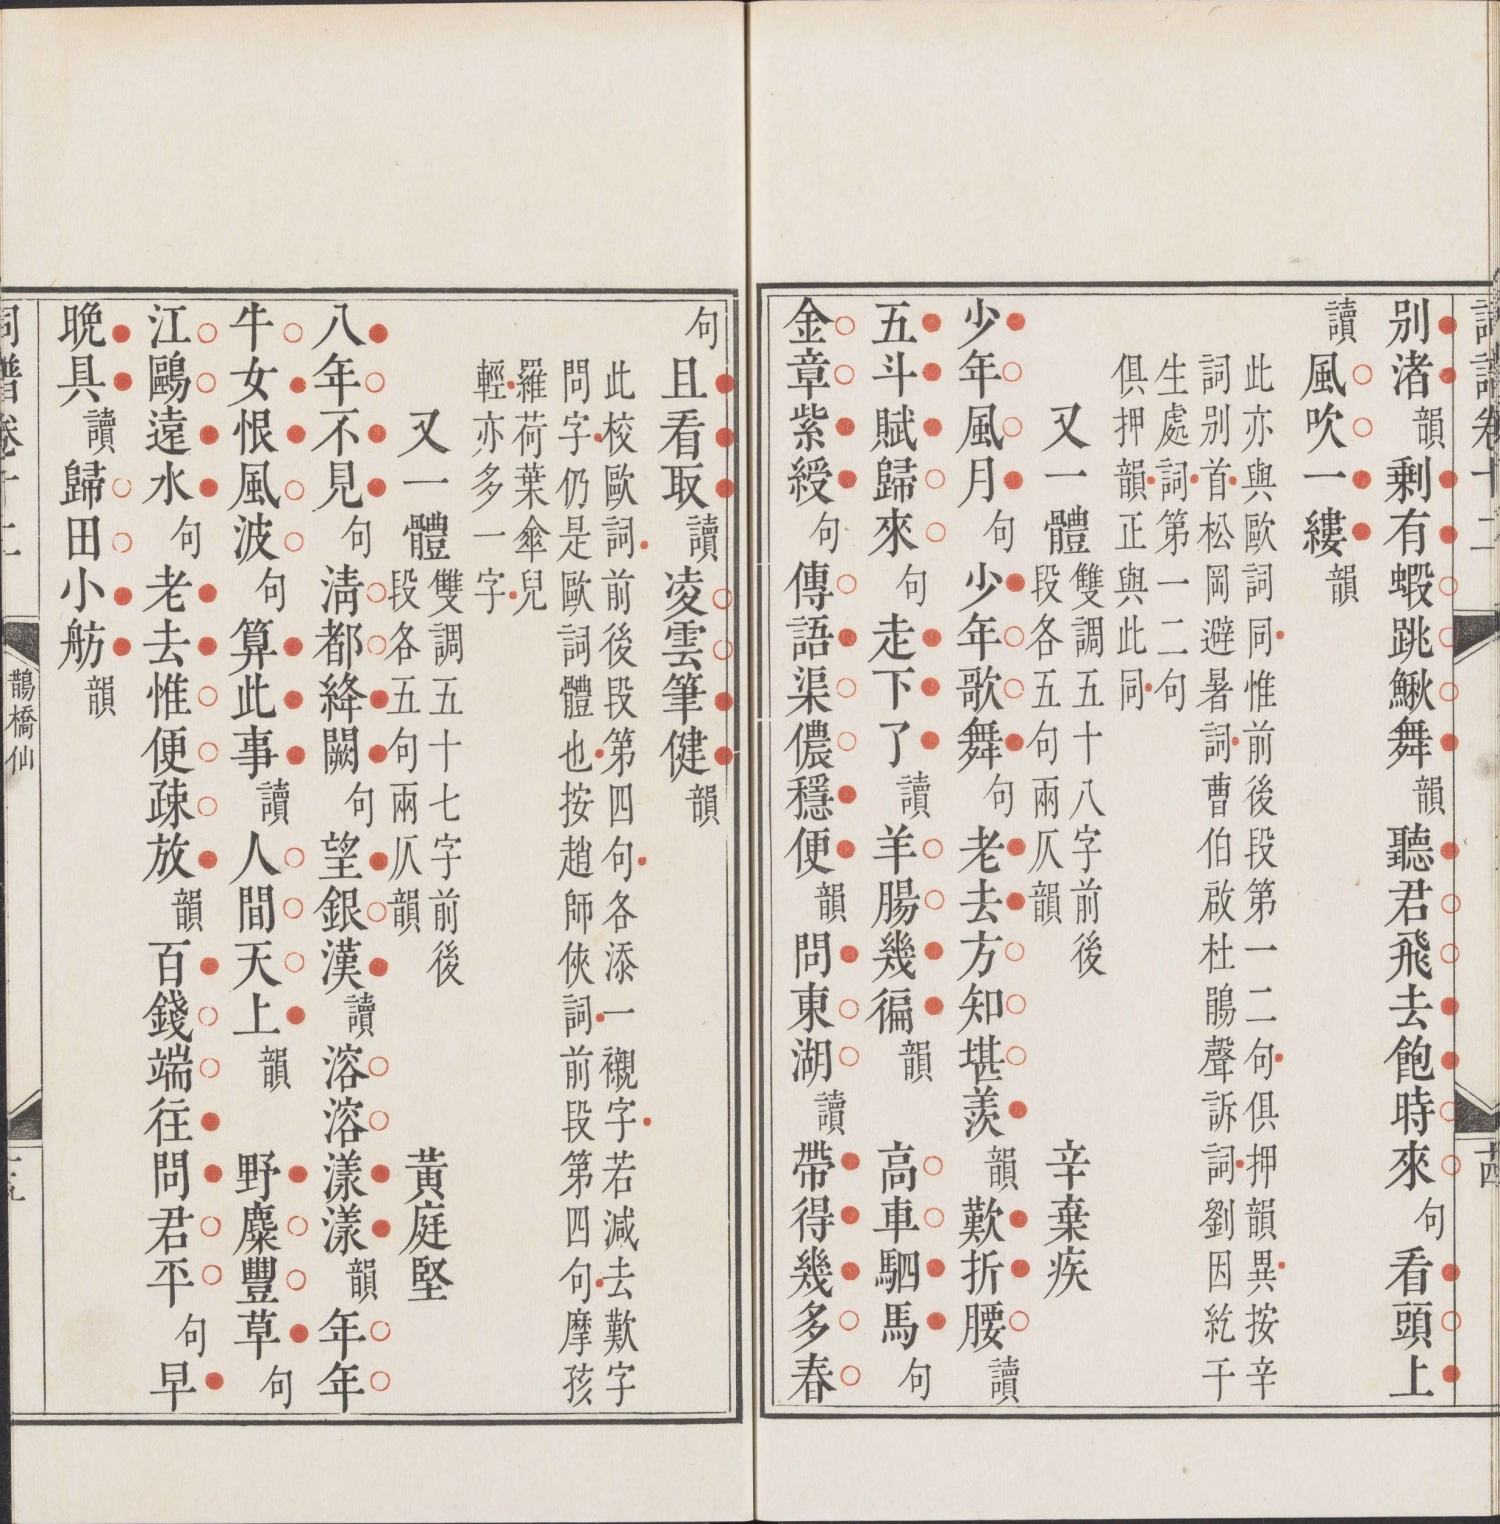 別渚韻剩有蝦跳鰍舞韻聽君飛去飽時來句看頭上
讀風吹一縷韻
此亦與歐詞同惟前後段第一二句俱押韻異按辛
詞別首松岡避暑詞曹伯啟杜鵑聲訴詞劉因紇干
生處詞第一二句
俱押韻正與此同
又一體
雙調五十八字前後
段各五句兩仄韻
辛棄疾
少年風月句少年歌舞句老去方知堪羨韻歎折腰讀
五斗賦歸來句走下了讀羊腸幾徧韻高車駟馬句
金章紫綬句傳語渠儂穩便韻問東湖讀帶得幾多春
句且看取讀凌雲筆健韻
此校歐詞前後段第四句各添一襯字若減去歎字
問字仍是歐詞體也按趙師俠詞前段第四句摩孩
羅荷葉傘兒
輕亦多一字
又一體
雙調五十七字前後
段各五句兩仄韻
黃庭堅
八年不見句清都絳闕句望銀漢讀溶溶漾漾韻年年
牛女恨風波句算此事讀人間天上韻野麋豐草句
江鷗遠水句老去惟便疎放韻百錢端往問君平句早
晚具讀歸田小舫韻
鵲橋仙